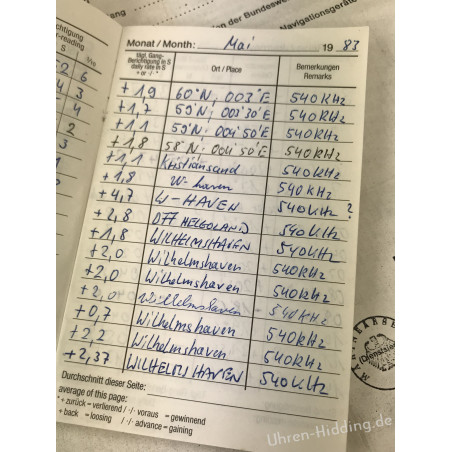 en der Bundeswe
Navigationsgerät
chtigung
er-reading
S
1/10
2 6
4 3
4 4
Monat / Month: Mai 19 83
tägl. Gang-
Berichtigung in S
daily rate in S
+ or -/- *
Ort / Place
Bemerkungen
Remarks
+1,9 60°N; 003°E 540KHz
+1,7 59°N; 003°30'E 540KHz
+1,1 59°N; 004°50'E 540KHz
+1,8 58°N; 004°50'E 540KHz
+1,1 Kristiansand 540KHz
+1,8 W-haven 540KHz
+4,7 W-HAVEN 540KHz ?
+2,8 OFF HELGOLAND 540KHz
+1,8 WILHELMSHAVEN 540KHz
+2,0 Wilhelmshaven 540KHz
+2,0 Wilhelmshaven 540KHz
+2,0 Wilhelmshaven 540KHz
+0,7 Wilhelmshaven 540KHz
+2,2 Wilhelmshaven 540KHz
+2,37 WILHELMSHAVEN 540KHz
Durchschnitt dieser Seite:
average of this page:
* + zurück = verlierend / -/- voraus = gewinnend
+ back = loosing / -/- advance = gaining
MARINEARSE
(Dienstste
Uhren-Hidding.de